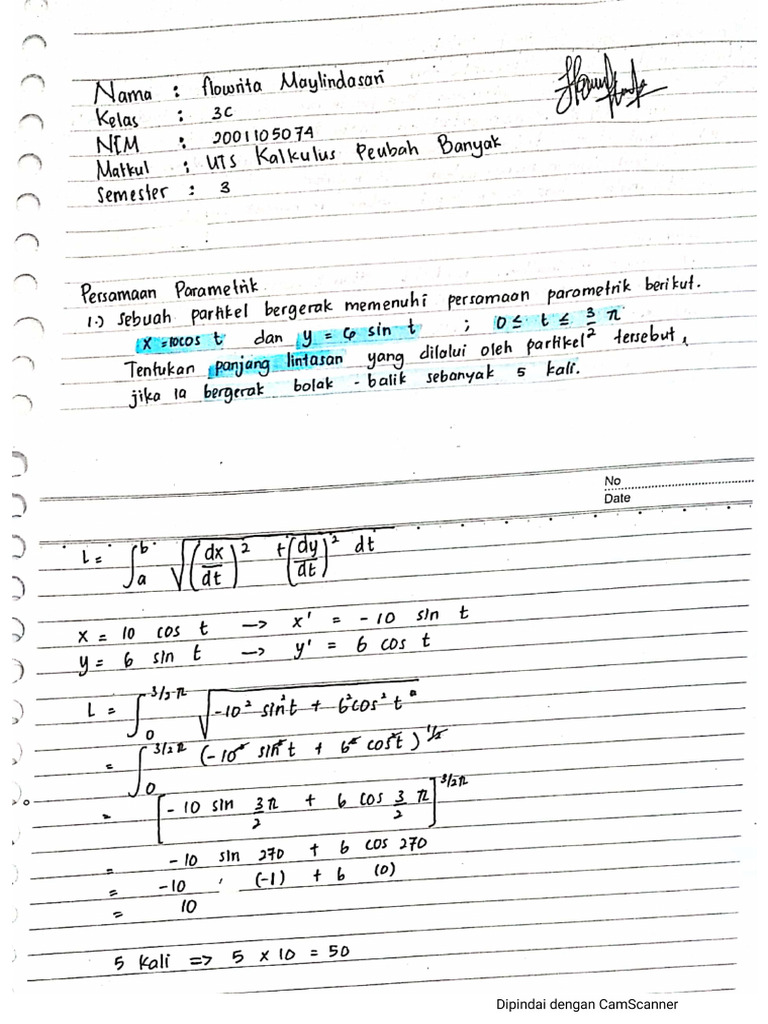 Nama : Nowrita Maylindasari
Kelas : 3C
NIM : 2001105074
Matkul : UTS Kalkulus Peubah Banyak
Semester : 3
Persamaan Parametrik
1.) Sebuah partikel bergerak memenuhi persamaan parametrik berikut.
x = 10cos t dan y = 6 sin t ; 0 ≤ t ≤ 3/2 π
Tentukan panjang lintasan yang dilalui oleh partikel tersebut,
jika ia bergerak bolak - balik sebanyak 5 kali.
No
Date
L = ∫_a^b √((dx/dt)² + (dy/dt)²) dt
x = 10 cos t -> x' = -10 sin t
y = 6 sin t -> y' = 6 cos t
L = ∫_0^{3/2 π} √(-10² sin² t + 6² cos² t)
= ∫_0^{3/2 π} (-10² sin² t + 6² cos² t)^{1/2}
= [-10 sin 3π/2 + 6 cos 3/2 π]^{3/2 π}
= -10 sin 270 + 6 cos 270
= -10 . (-1) + 6 (0)
= 10
5 kali => 5 x 10 = 50
Dipindai dengan CamScanner